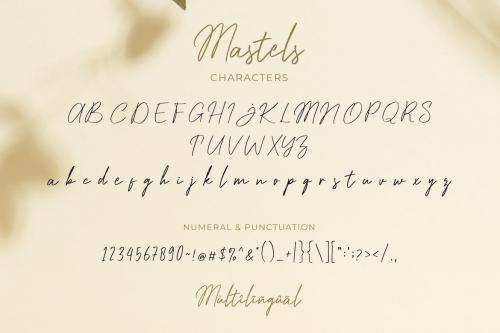 Mastels
CHARACTERS
A B C D E F G H I J K L M N O P Q R S
T U V W X Y Z
a b c d e f g h i j k l m n o p q r s t u v w x y z
NUMERAL & PUNCTUATION
1234567890~!@#$%^&*()_+|}{\]["':;?></.,
Mültilïngüäl